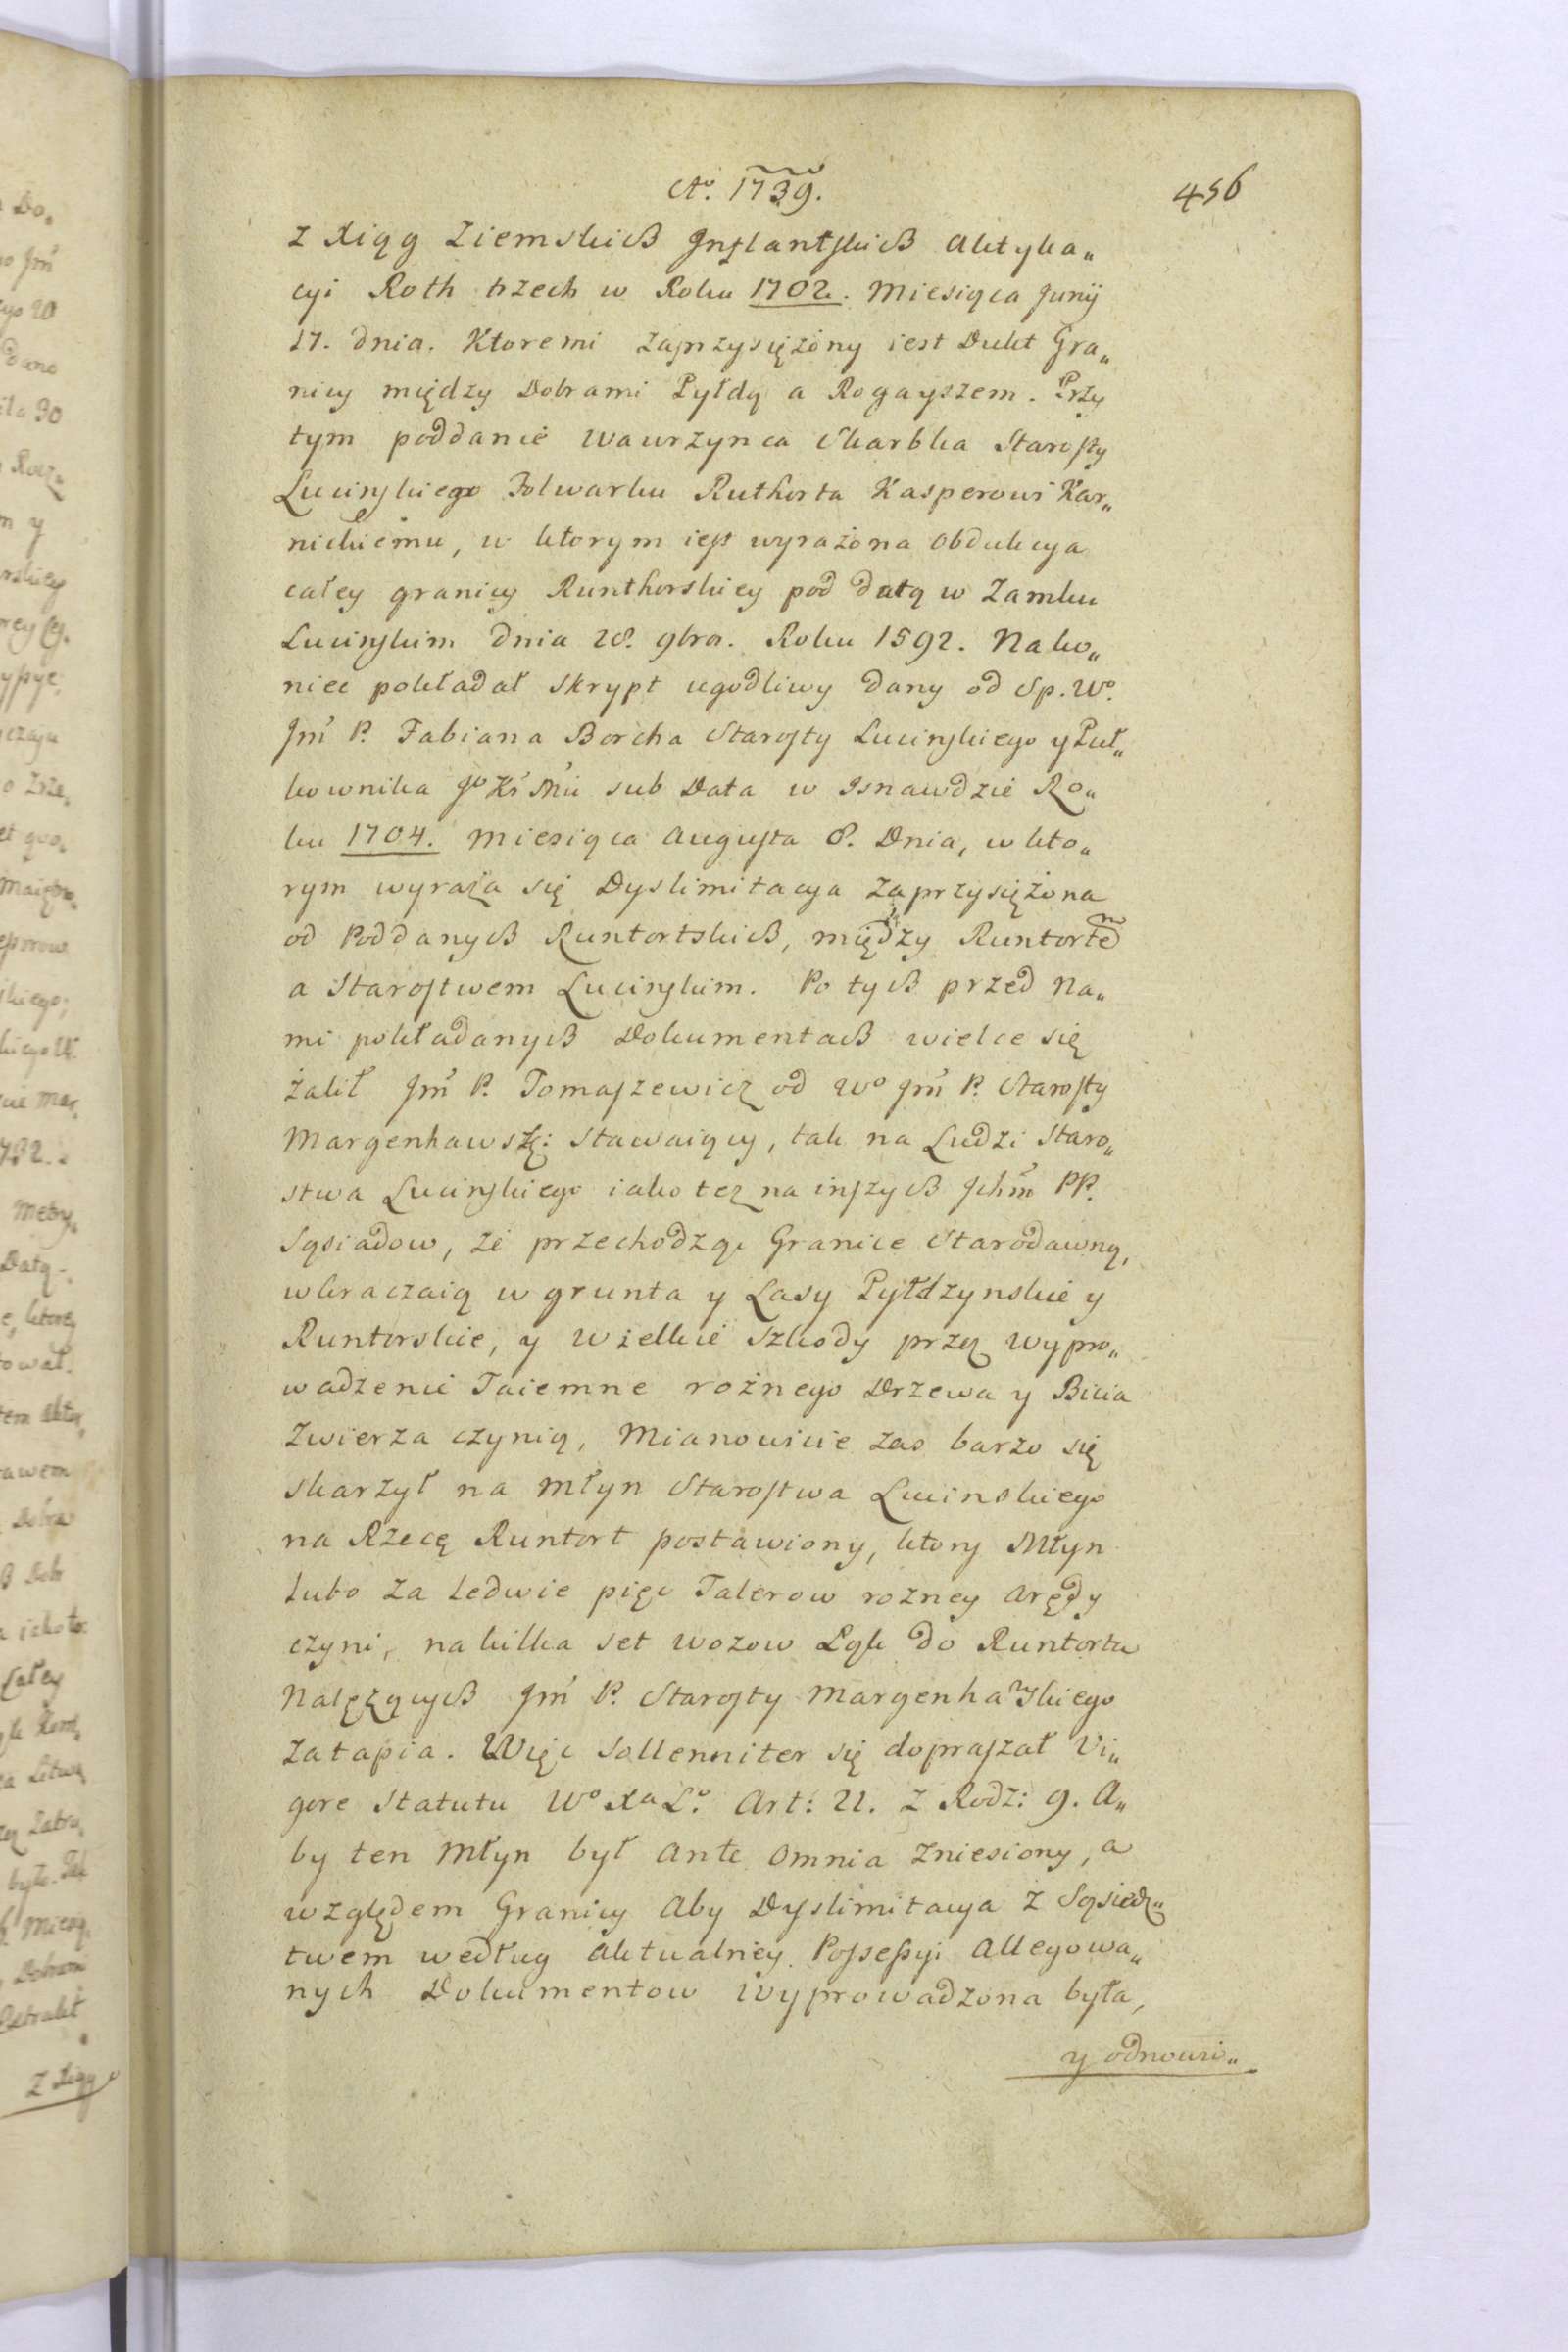 Ao. 1739.
456
z Xiąg Ziemskich Inflantskich Aktyka„
cyi Roth trzech w Roku 1702. Miesiąca Junij
17. dnia. Ktoremi zaprzysiężony iest Dukt Gra„
nicy między Dobrami Pyłdą a Rogayszem. Przy
tym poddanie Wawrzynca Skarbka Starosty
Lucinskiego Folwarku Ruthorta Kasperowi Kar„
nickiemu, w ktorym iest wyrażona Obdukcya
całey granicy Runthorskiey pod datą w Zamku
Lucinskim dnia 28. 9bra. Roku 1592. Nako„
niec pokładał skrypt ugodliwy dany od Sp. Wo.
Jm P. Fabiana Borcha Starosty Lucinskiego y Puł„
kownika Jo Kr Mci sub Data w Isnawdzie Ro„
ku 1704. Miesiąca Augusta 8. Dnia, w kto„
rym wyraża się Dyslimitacya zaprzysiężona
od Poddanych Runtortskich, między Runtortem
a Starostwem Lucinskim. Po tych przed na„
mi pokładanych Dokumentach wielce się
żalił Jm P. Tomaszewicz od Wo Jm P. Starosty
Margenhawsk: stawaiący, tak na Ludzi Staro„
stwa Lucinskiego iako tez na inszych Ichm PP.
Sąsiadow, że przechodząc Granice Starodawną,
wkraczaią w grunta y Lasy Pyłdzynskie y
Runtorskie, y wielkie Szkody przez wypro„
wadzenie Taiemne rożnego Drzewa y Bicia
Zwierza czynią, Mianowicie zas barzo się
skarzył na Młyn Starostwa Lucinskiego
na Rzecę Runtort postawiony, ktory Młyn
lubo za ledwie pięc Talerow rozney Arędy
czyni, na kilka set wozow Łąk do Runtortu
Nalężących Jm P. Starosty Margenhaskiego
zatapia. Więc sollenniter się dopraszał Vi„
gore Statutu Wo Xa Lo. Art: 21. z Rodz: 9. A„
by ten Młyn był Ante omnia zniesiony, a
względem Granicy Aby Dyslimitacya z Sąsiedz„
twem według aktualney Possessyi Allegowa„
nych Dokumentow wyprowadzona była,
y odnowi„